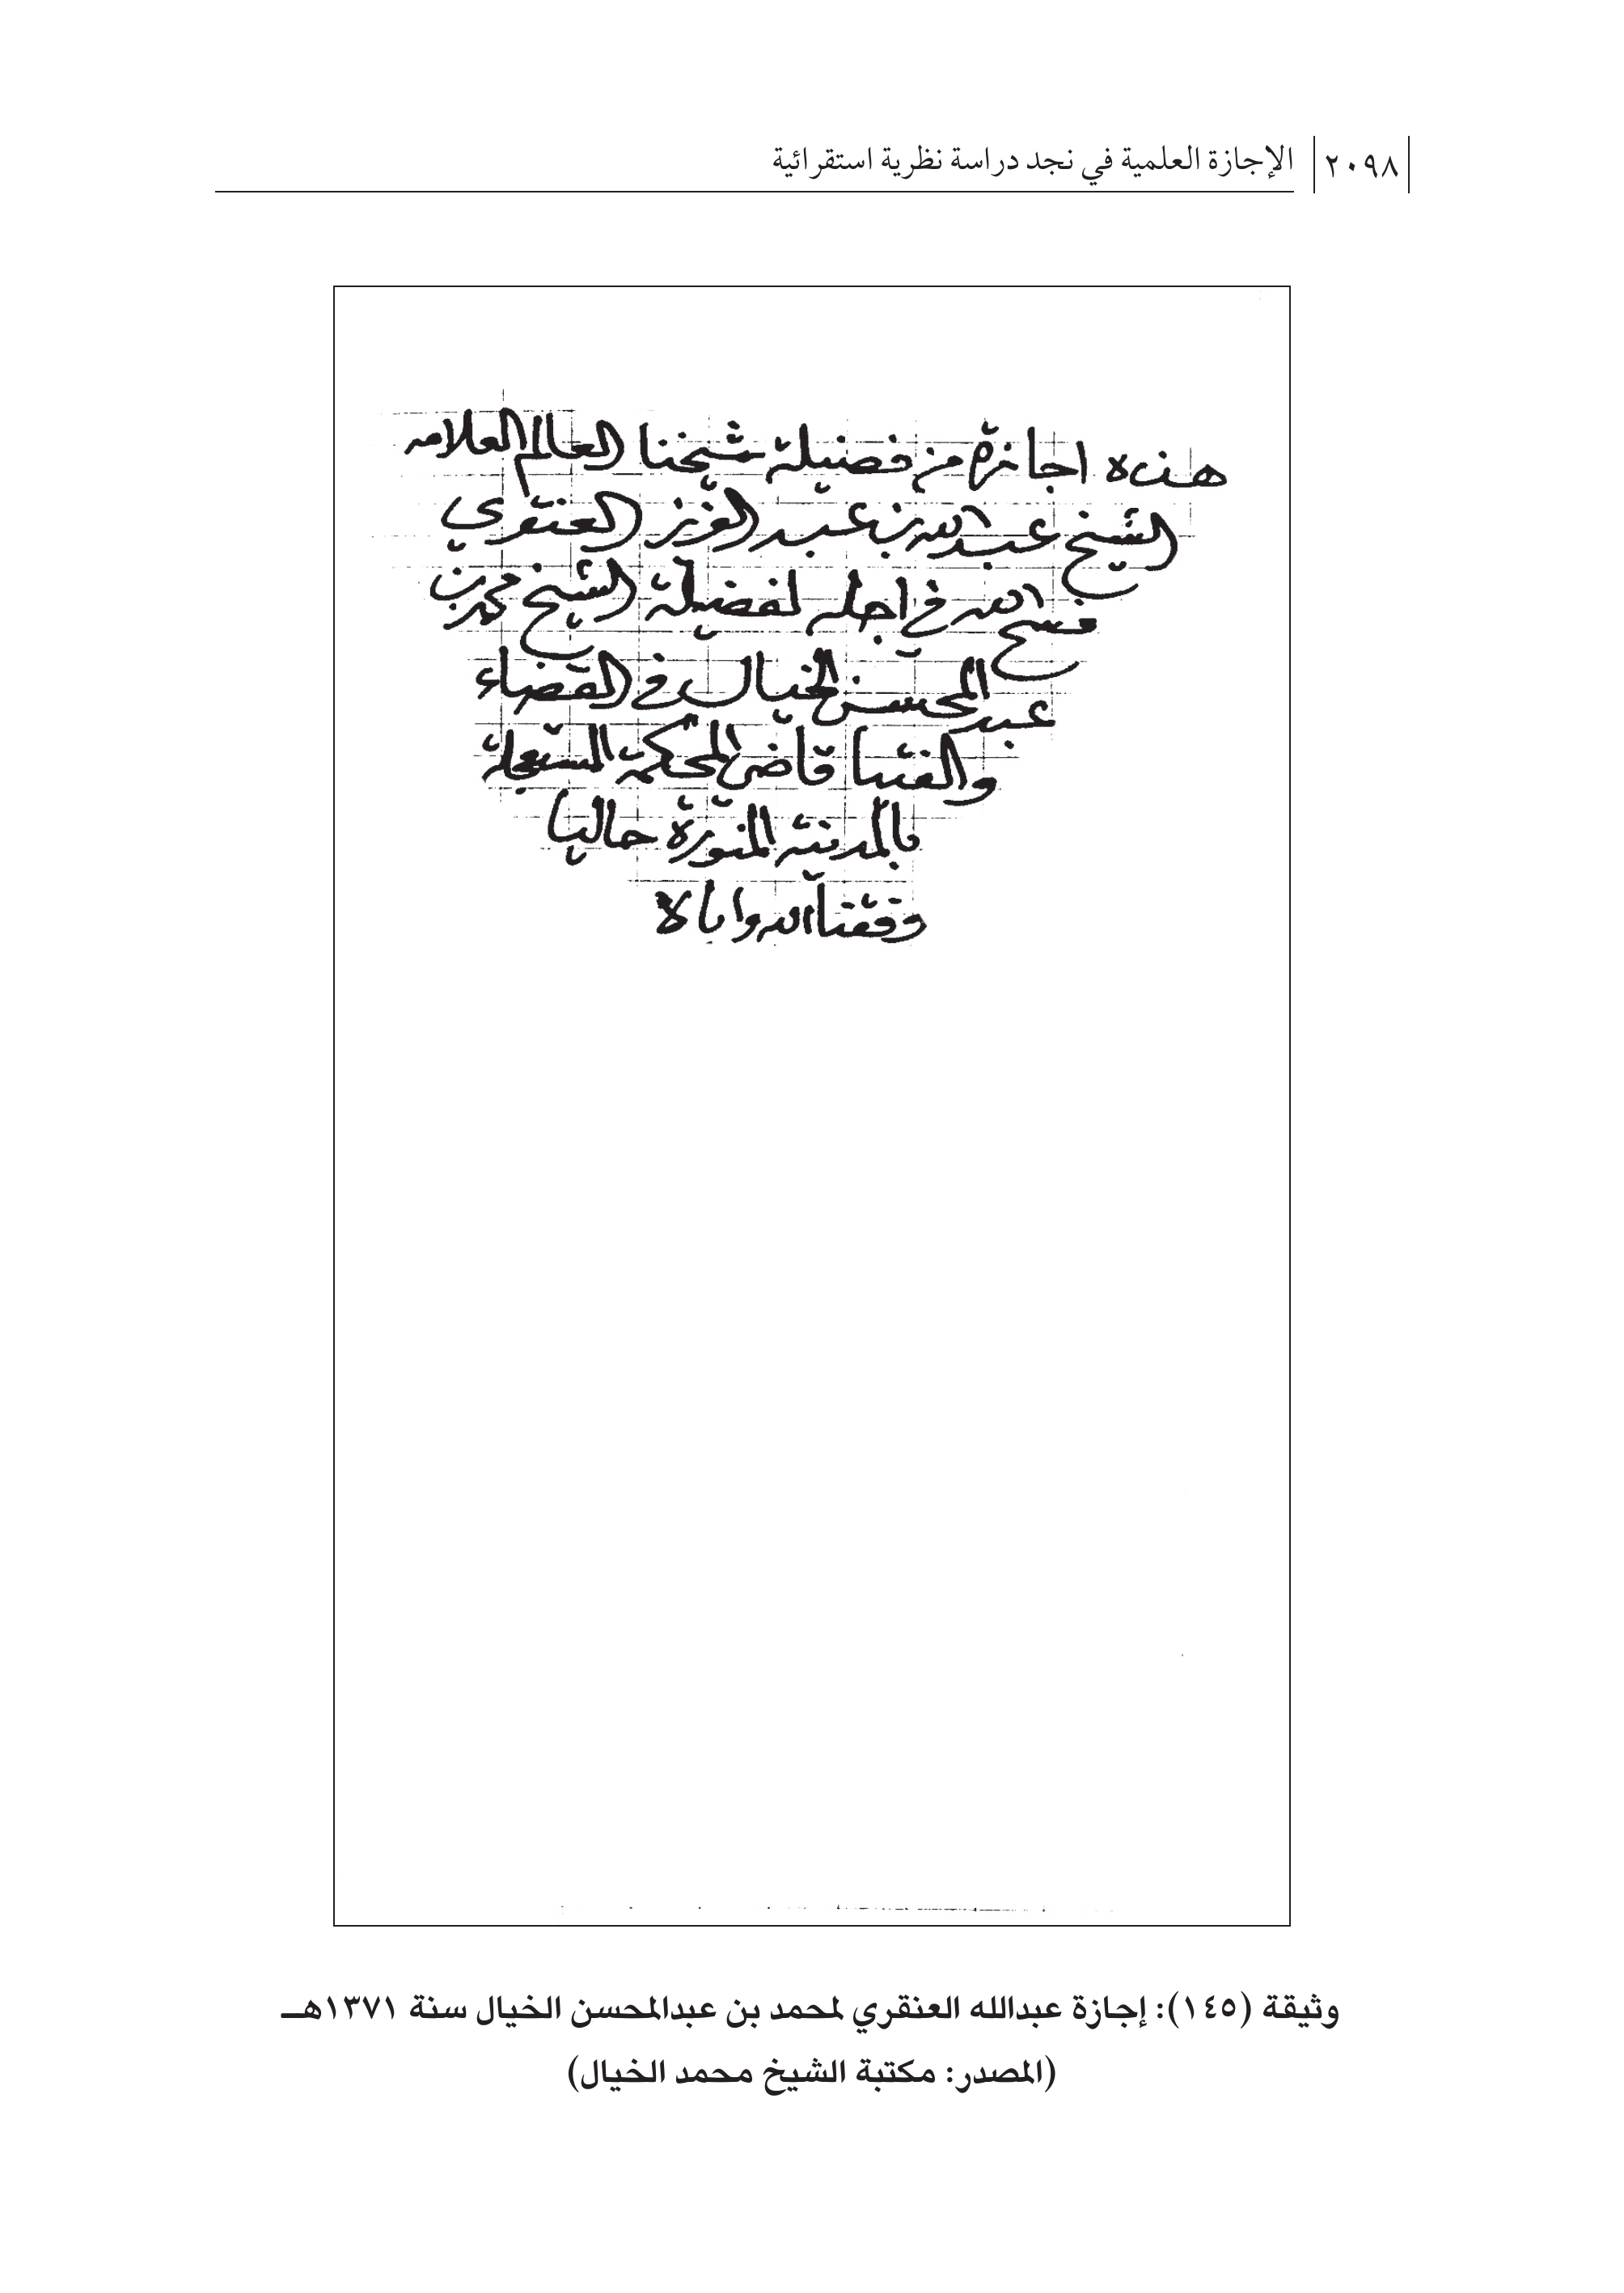 ٢٠٩٨ الإجازة العلمية في نجد دراسة نظرية استقرائية
هذه اجازة من فضيلة شيخنا العالم العلامه
الشيخ عبد الله بن عبد العزيز العنقري
فسح الله في اجله لفضيلة الشيخ محمد بن
عبد المحسن الخيال في القضاء
والفتيا قاضي المحكمة المستعجلة
بالمدينة المنورة حاليا
وفقنا الله واياه
وثيقة (١٤٥): إجازة عبدالله العنقري لمحمد بن عبدالمحسن الخيال سنة ١٣٧١هـ
(المصدر: مكتبة الشيخ محمد الخيال)